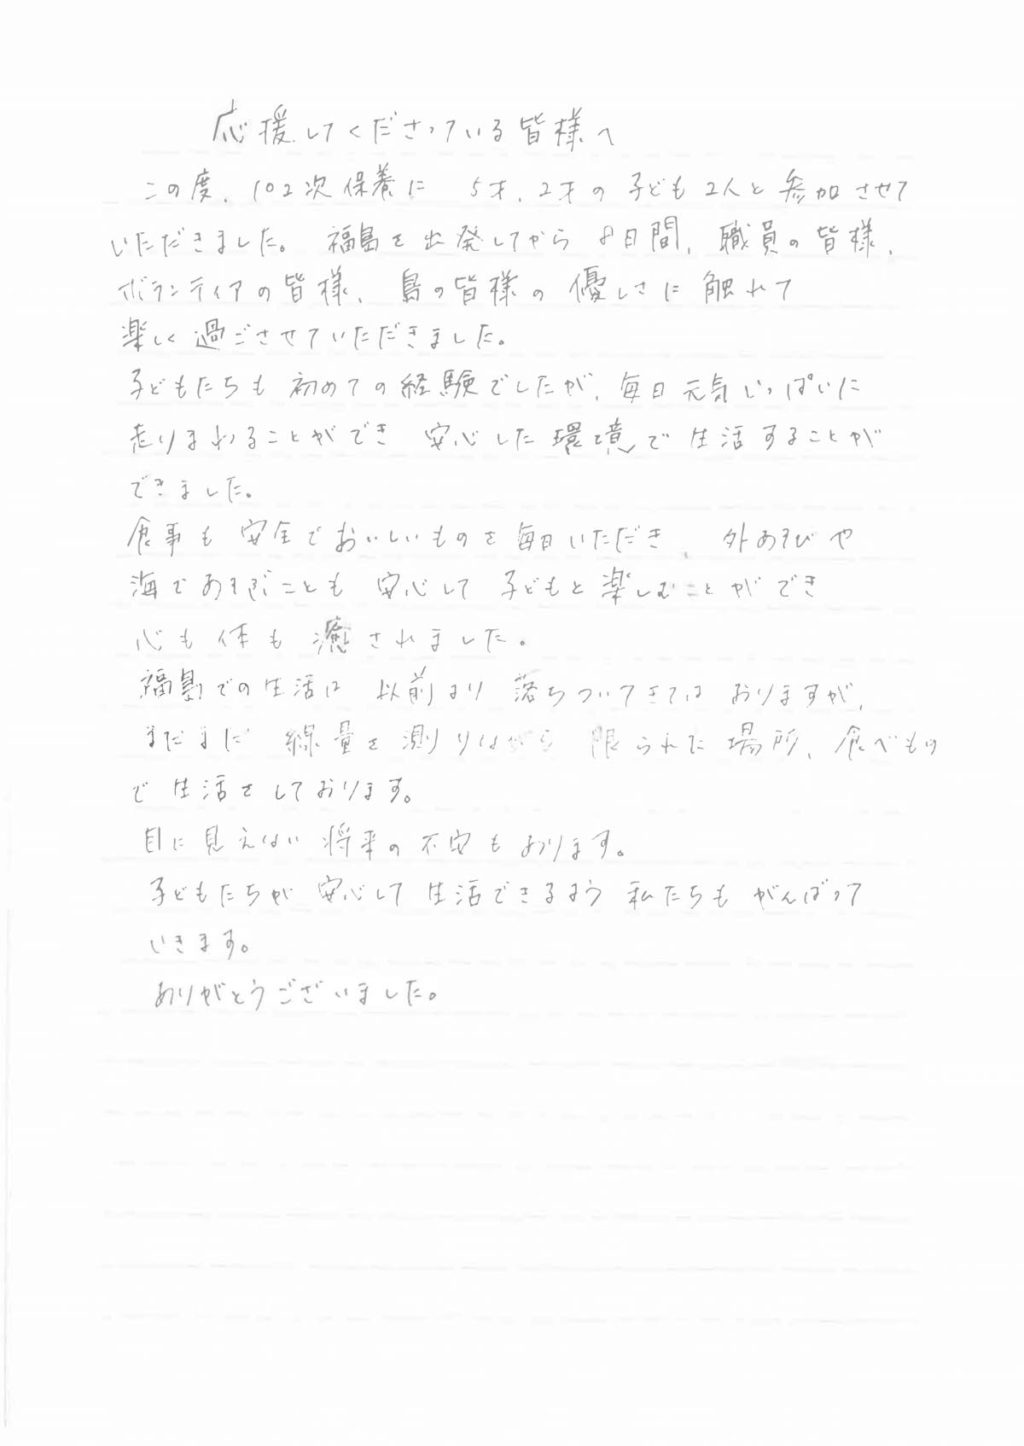 応援してくださっている皆様へ
この度、102次保養に 5才、2才の子ども2人と参加させて
いただきました。福島を出発してから8日間、職員の皆様、
ボランティアの皆様、島の皆様の優しさに触れて
楽しく過ごさせていただきました。
子どもたちも初めての経験でしたが、毎日元気いっぱいに
走りまわることができ 安心した環境で生活することが
できました。
食事も安全でおいしいものを毎日いただき、外あそびや
海であそぶことも安心して子どもと楽しむことができ
心も体も癒されました。
福島での生活は以前より落ちついてきてはおりますが、
まだまだ線量を測りながら限られた場所、食べもの
で生活をしております。
目に見えない将来の不安もあります。
子どもたちが安心して生活できるよう私たちもがんばって
いきます。
ありがとうございました。